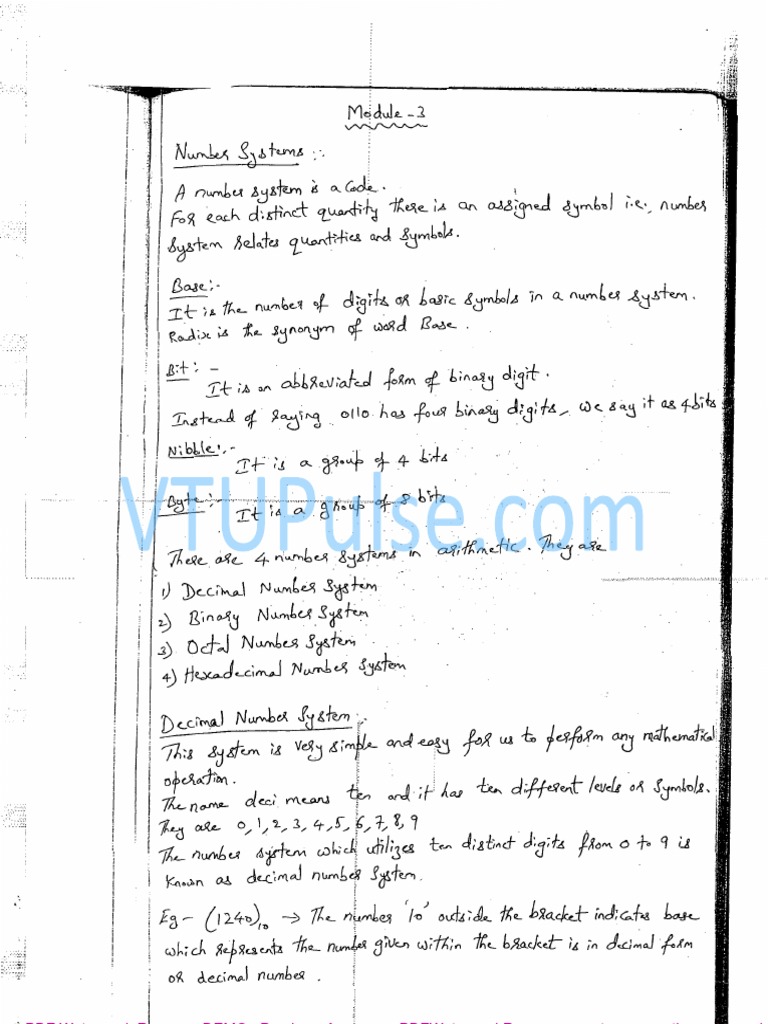 Module - 3
Number Systems :-
A number system is a code.
For each distinct quantity there is an assigned symbol i.e., number
system relates quantities and symbols.
Base:-
It is the number of digits or basic symbols in a number system.
Radix is the synonym of word Base.
Bit:-
It is an abbreviated form of binary digit.
Instead of saying 0110 has four binary digits, we say it as 4 bits
Nibble:-
It is a group of 4 bits
Byte:-
It is a group of 8 bits
VTUPulse.com
There are 4 number systems in arithmetic. They are
1) Decimal Number System
2) Binary Number System
3) Octal Number System
4) Hexadecimal Number System
Decimal Number System:-
This system is very simple and easy for us to perform any mathematical
operation.
The name deci means ten and it has ten different levels or symbols.
They are 0,1,2,3,4,5,6,7,8,9
The number system which utilizes ten distinct digits from 0 to 9 is
known as decimal number system.
Eg - (1240)10 → The number '10' outside the bracket indicates base
which represents the number given within the bracket is in decimal form
or decimal number.